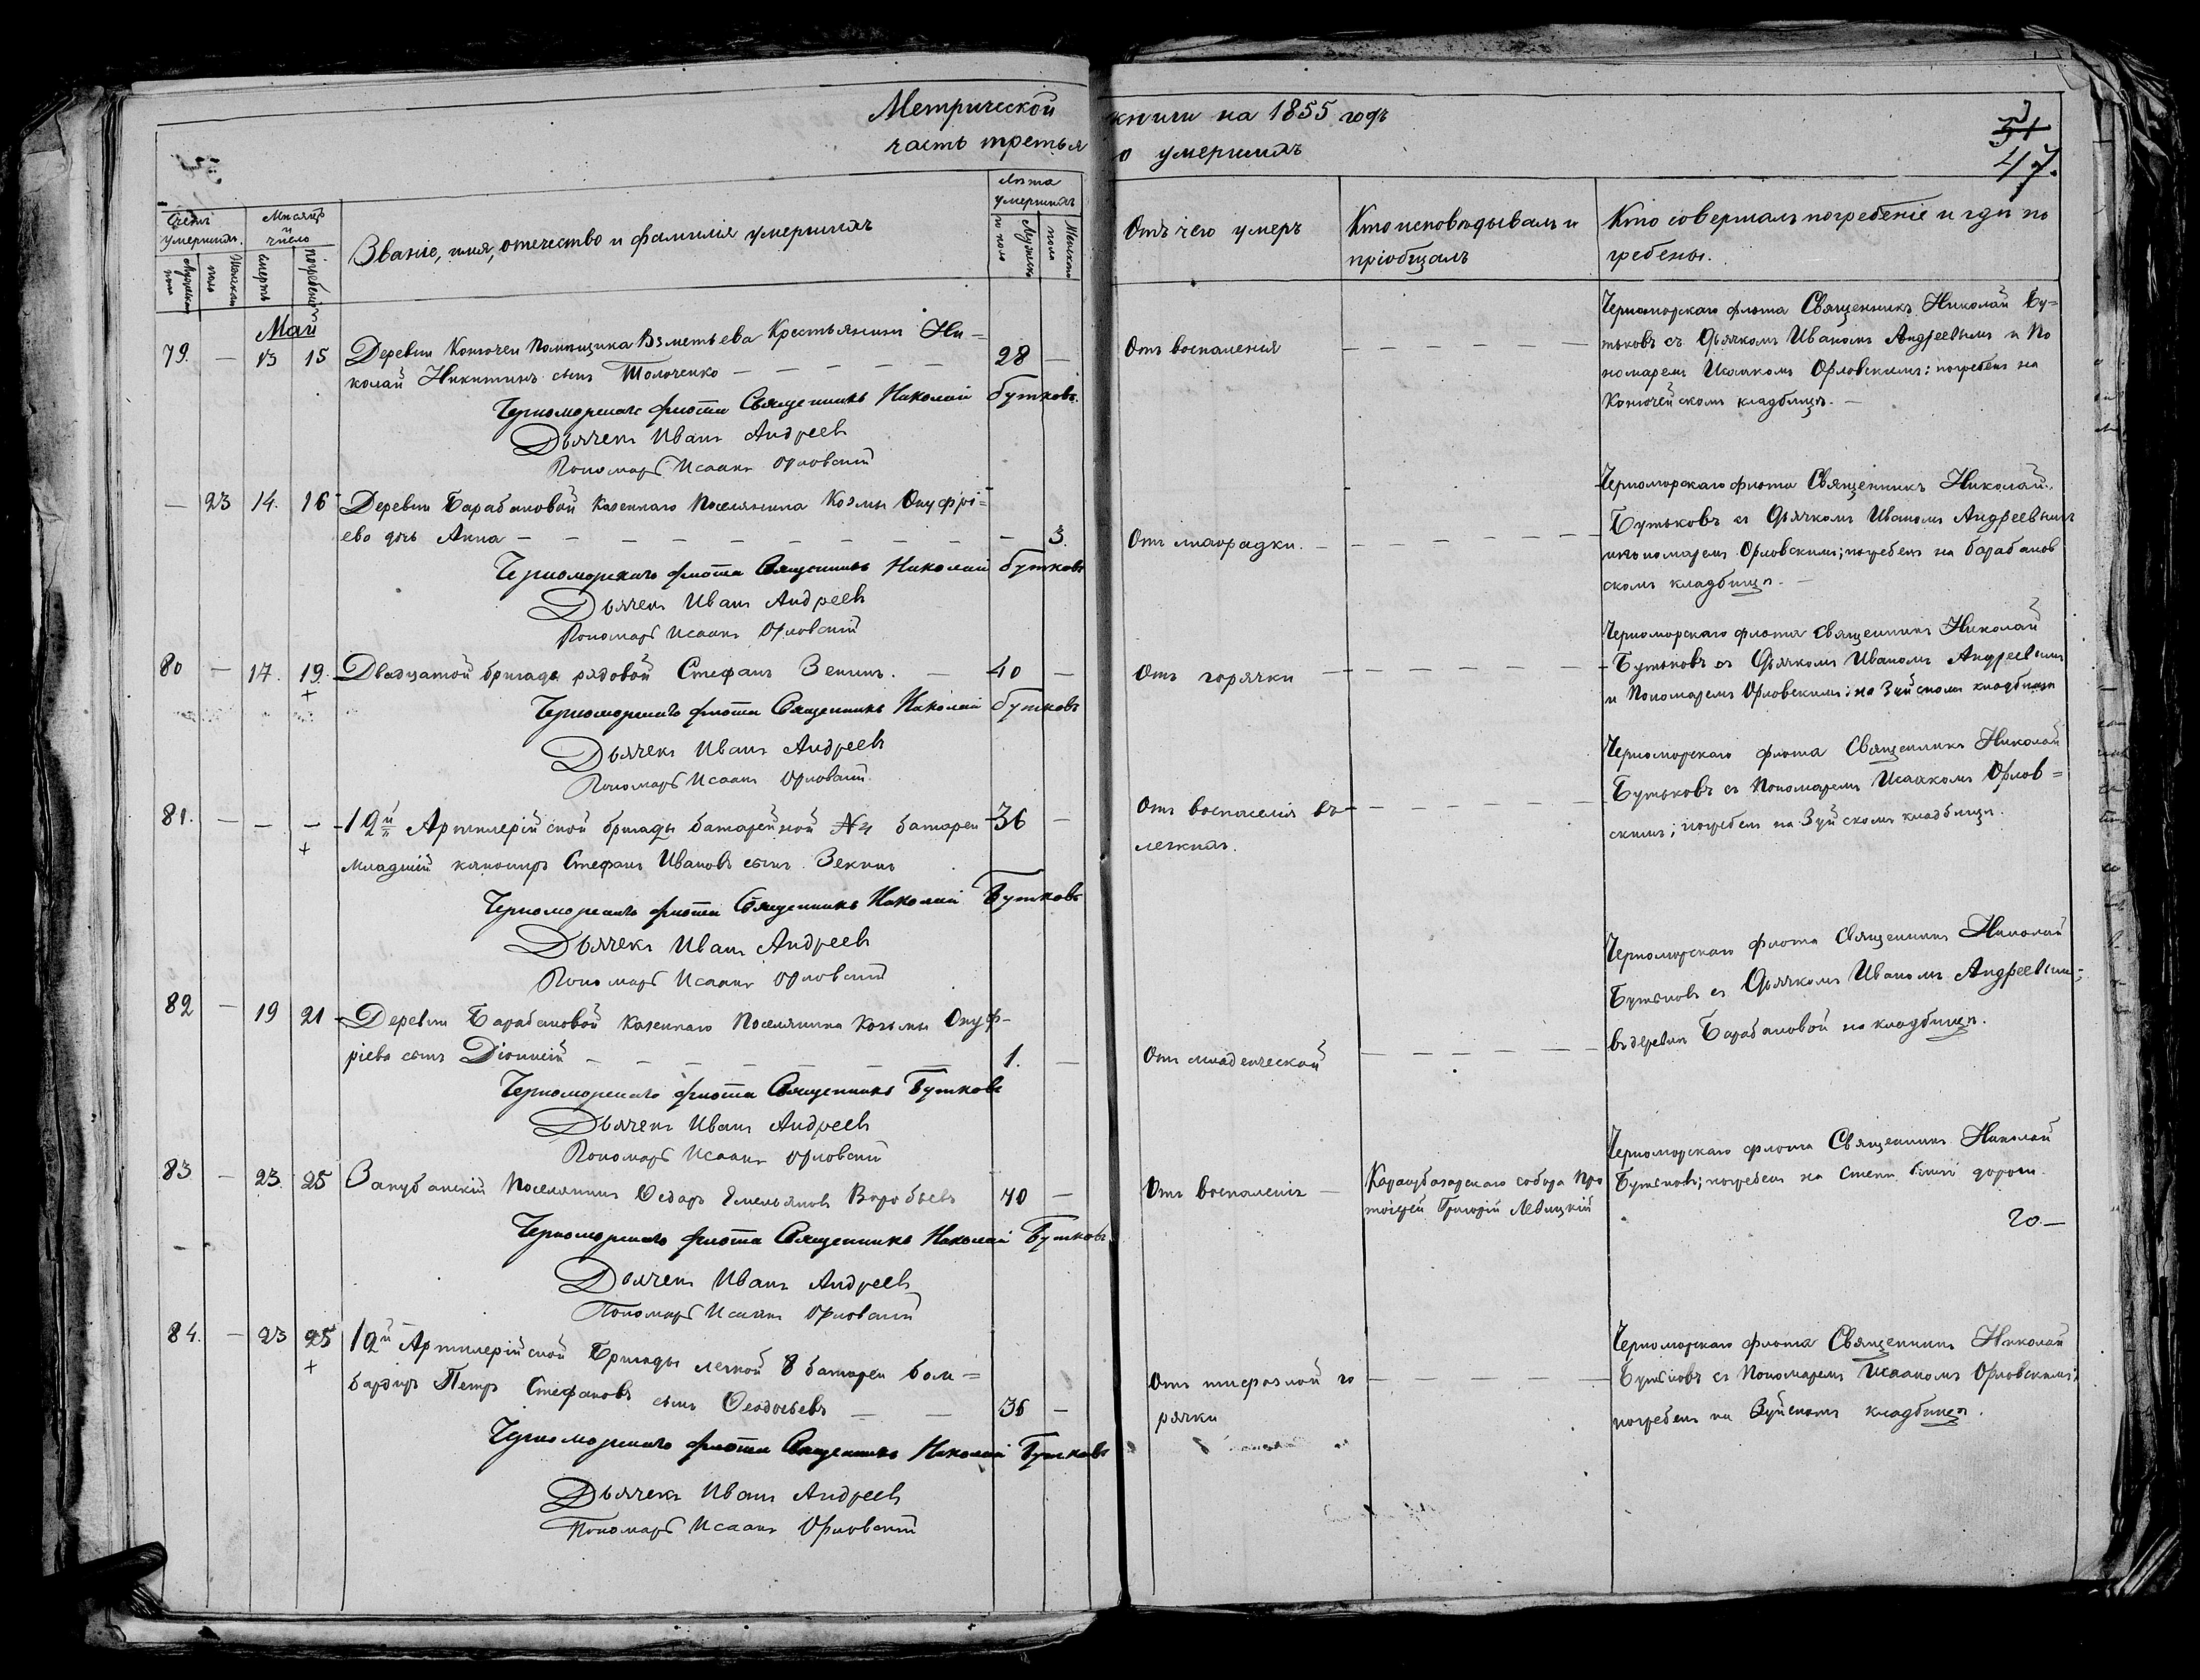 Метрической книги на 1855 годъ
часть третья о умершихъ
51
47.
Счетъ умершихъ.
Мужеска пола
Женска пола
Мѣсяцъ и число
смерти
погребенія
Званіе, имя, отечество и фамилія умершихъ
Лѣта умершихъ
Мужеска пола
Женскаго пола
Отъ чего умеръ
Кто исповѣдывалъ и
пріобщалъ
Кто совершалъ погребеніе и гдѣ по
гребены.
Май
79. — 13 15 Деревни Конючеи Помѣщика Крестьянинъ Ни-
колай Никитинъ сынъ Толоченко — 28 —
Черноморскаго флота Священникъ Николай Бутковъ.
Дьячекъ Иванъ Андреевъ
Пономарь Исаакъ Орловскій
Отъ воспаленія
Черноморскаго флота Священникъ Николай Бу=
тьковъ съ Дьячкомъ Иваномъ Андреевымъ и По
номаремъ Исаакомъ Орловскимъ: погребенъ на
Конючейскомъ кладбищѣ. —
— 23 14. 16 Деревни Барабановой Казеннаго Поселянина Козмы Онуфрі=
ева дочь Анна — 3.
Черноморскаго флота Священникъ Николай Бутковъ
Дьячекъ Иванъ Андреевъ
Пономарь Исаакъ Орловскій
Отъ лихорадки. —
Черноморскаго флота Священникъ Николай
Бутьковъ съ Дьячкомъ Иваномъ Андреевымъ
и пономаремъ Орловскимъ; погребенъ на барабанов
скомъ кладбищѣ. —
80 — 17. 19. Двадцатой бригады рядовой Стефанъ Зенинъ. — 40 —
+
Черноморскаго флота Священникъ Николай Бутковъ
Дьячекъ Иванъ Андреевъ
Пономарь Исаакъ Орловскій
Отъ горячки
Черноморскаго флота Священникъ Николай
Бутьковъ съ Дьячкомъ Иваномъ Андреевымъ
и Пономаремъ Орловскимъ: на Зуйскомъ кладбищѣ
81. — — — 12й Артилерійской бригады батарейной №4 батареи 36 —
+
младшій канониръ Стефанъ Ивановъ сынъ Зекинъ
Черноморскаго флота Священникъ Николай Бутковъ
Дьячекъ Иванъ Андреевъ
Пономарь Исаакъ Орловскій
Отъ воспаленія въ
легкихъ.
Черноморскаго флота Священникъ Николай
Бутьковъ съ Пономаремъ Исаакомъ Орлов=
скимъ; погребенъ на Зуйскомъ кладбищѣ.
82 — 19 21 Деревни Барабановой Казеннаго Поселянина Козьмы Онуф-
ріева сынъ Діонисій — 1. —
Черноморскаго флота Священникъ Бутковъ
Дьячекъ Иванъ Андреевъ
Пономарь Исаакъ Орловскій
Отъ младенческой
Черноморскаго флота Священникъ Николай
Бутьковъ съ Дьячкомъ Иваномъ Андреевымъ;
въ деревнѣ Барабановой на кладбищѣ.
83 — 23. 25 Закубанскій Поселянинъ Ѳедоръ Емельяновъ Воробьевъ 70 —
Черноморскаго флота Священникъ Николай Бутковъ
Дьячекъ Иванъ Андреевъ
Пономарь Исаакъ Орловскій
Отъ воспаленія —
Карасубазарскаго собора Про
тоіерей Григорій Левицкій
Черноморскаго флота Священникъ Николай
Бутьковъ; погребенъ на Степи близь дороги.
го.—
84. — 23 25 12й Артилерійской Бригады легкой 8 батареи бом=
+
бардиръ Петръ Стефановъ сынъ Ѳеодосьевъ — 36 —
Черноморскаго флота Священникъ Николай Бутковъ
Дьячекъ Иванъ Андреевъ
Пономарь Исаакъ Орловскій
Отъ тифозной го
рячки
Черноморскаго флота Священникъ Николай
Бутьковъ съ Пономаремъ Исаакомъ Орловскимъ;
погребенъ на Зуйскомъ кладбищѣ.